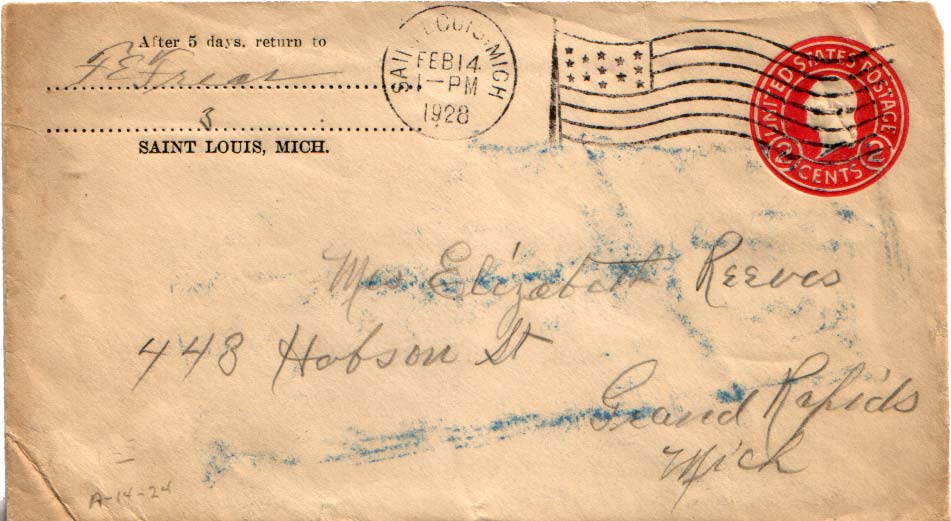 After 5 days, return to
F E Frear
3
SAINT LOUIS, MICH.
SAINT LOUIS, MICH
FEB 14
1-PM
1928
UNITED STATES POSTAGE
2 CENTS 2
Mrs Elizabeth Reeves
448 Hobson St
Grand Rapids
Mich
A-14-24